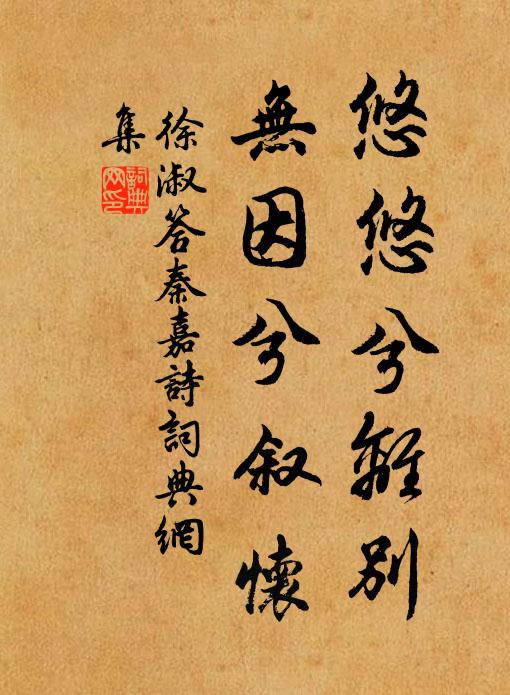 悠悠兮離別
無因兮叙懷
徐淑答秦嘉詩詞典網
集
詞典
网印